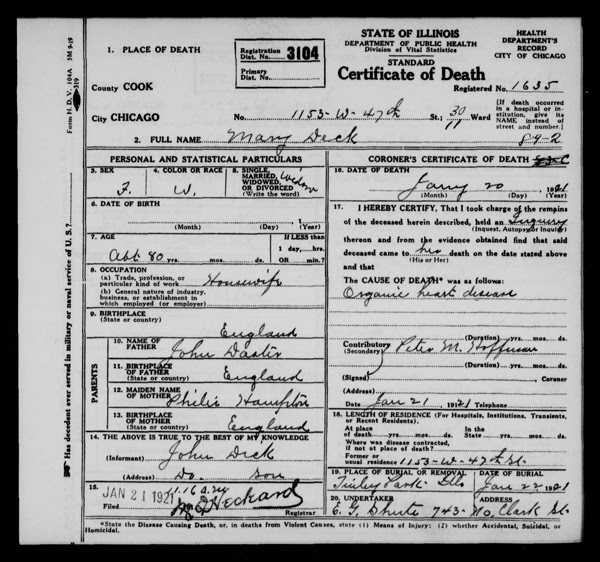 Form H. D. V. 104A 5M 9-19
319
Has decedent ever served in military or naval service of U.S.?
1. PLACE OF DEATH
County COOK
City CHICAGO
Registration Dist. No. 3104
Primary Dist. No.
STATE OF ILLINOIS
DEPARTMENT OF PUBLIC HEALTH
Division of Vital Statistics
STANDARD
Certificate of Death
HEALTH
DEPARTMENT'S
RECORD
CITY OF CHICAGO
Registered No. 1635
No. 1153-W-47th St; 30 11 Ward
[If death occurred
in a hospital or in-
stitution, give its
NAME instead of
street and number.]
2. FULL NAME Mary Deck 89-2
PERSONAL AND STATISTICAL PARTICULARS
3. SEX F. 4. COLOR OR RACE W. 5. SINGLE, MARRIED, WIDOWED, OR DIVORCED (Write the word) Widow
6. DATE OF BIRTH
(Month) (Day) (Year)
7. AGE If LESS than
Abt 80 yrs. mos. ds. 1 day, hrs. OR min.?
8. OCCUPATION
(a) Trade, profession, or
particular kind of work Housewife
(b) General nature of industry,
business, or establishment in
which employed (or employer)
9. BIRTHPLACE
(State or country) England
PARENTS
10. NAME OF
FATHER John
11. BIRTHPLACE
OF FATHER
(State or country) England
12. MAIDEN NAME
OF MOTHER Hampton
13. BIRTHPLACE
OF MOTHER
(State or country) England
14. THE ABOVE IS TRUE TO THE BEST OF MY KNOWLEDGE
(Informant) John Deck
(Address) Do. Son
15. JAN 21 1921
Filed
Registrar
CORONER'S CERTIFICATE OF DEATH
16. DATE OF DEATH
Jany 20 1921
(Month) (Day) (Year)
17. I HEREBY CERTIFY, That I took charge of the remains
of the deceased herein described, held an Inquiry
(Inquest, Autopsy or Inquiry)
thereon and from the evidence obtained find that said
deceased came to her death on the date stated above
(His or Her)
and that
The CAUSE OF DEATH* was as follows:
Organic heart disease
(Duration) yrs. mos. ds.
Contributory
(Secondary) Peter M. Hoffman
(Duration) yrs. mos. ds.
(Signed) , Coroner
(Address)
Date Jan 21 1921 Telephone
18. LENGTH OF RESIDENCE (For Hospitals, Institutions, Transients,
or Recent Residents).
At place
of death yrs. mos. ds. In the State yrs. mos. ds.
Where was disease contracted,
if not at place of death?
Former or
usual residence 1153-W-47th St.
19. PLACE OF BURIAL OR REMOVAL DATE OF BURIAL
Tinley Park Ills Jan 22 1921
20. UNDERTAKER ADDRESS
E. G. 743-No. Clark St.
*State the Disease Causing Death, or, in deaths from Violent Causes, state (1) Means of Injury: (2) whether Accidental, Suicidal, or
Homicidal.